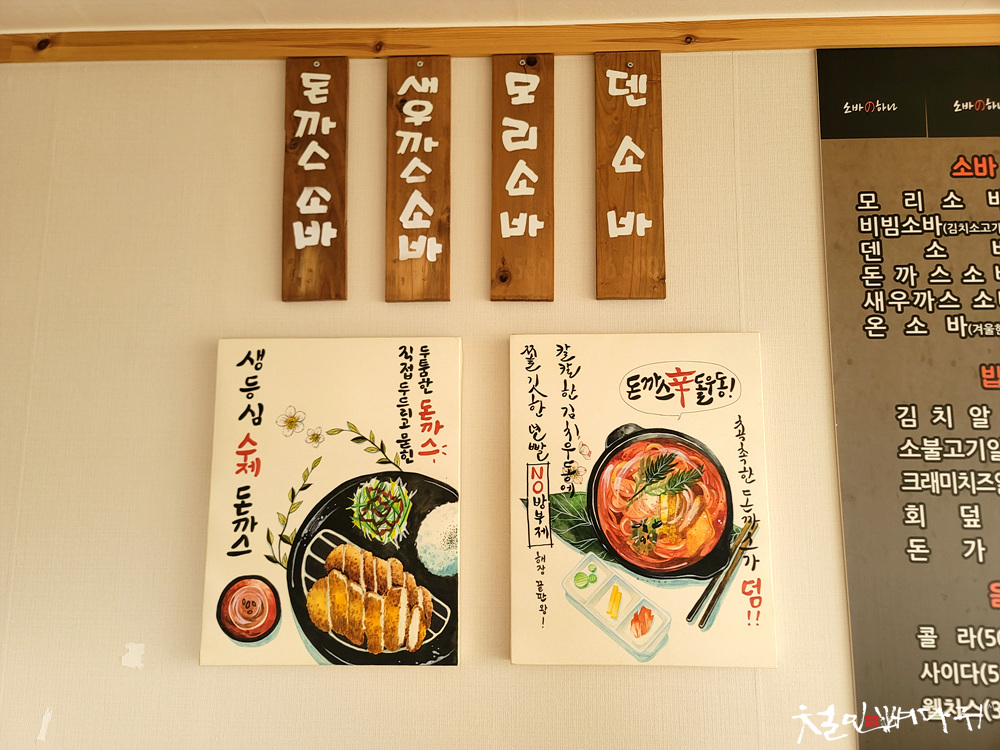 돈까스소바
새우까스소바
모리소바
덴소바
생등심 수제 돈까스
두툼한 돈까스
직접 두드리고 묻힌
쫄깃한 면빨
NO방부제
해장 끝판왕!
칼칼한 김치우동에
돈까스辛돌우동!
촉촉한 돈까스가
덤!!
소바の하나
소바の하나
소바
모리소바
비빔소바(김치소고기
덴소바
돈까스소바
새우까스 소바
온소바(겨울한
밥
김치알
소불고기알
크래미치즈알
회덮
돈가
음
콜라(50
사이다(5
웰치스(3